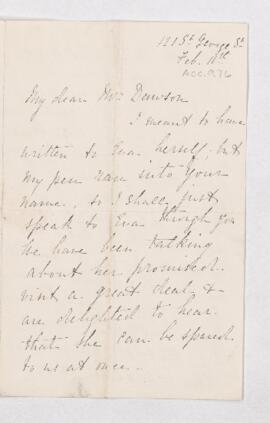 121 St. George St
Feb. 11th
ACC. 976
My dear Mrs Dawson
I meant to have
written to Eva herself, but
my pen ran into your
name, so I shall just
speak to Eva through you
We have been talking
about her promised
visit a great deal &
are delighted to hear
that she can be spared
to us at once.